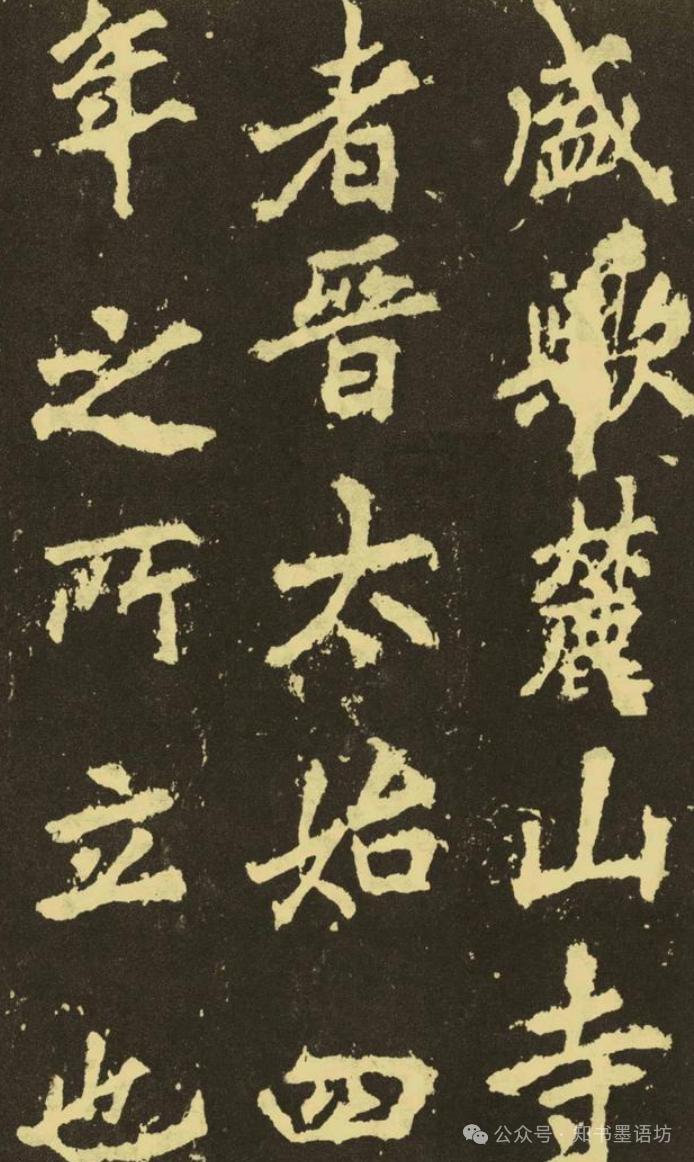 盛歟麓山寺
者晉太始四
年之所立也
公众号·知书墨语坊